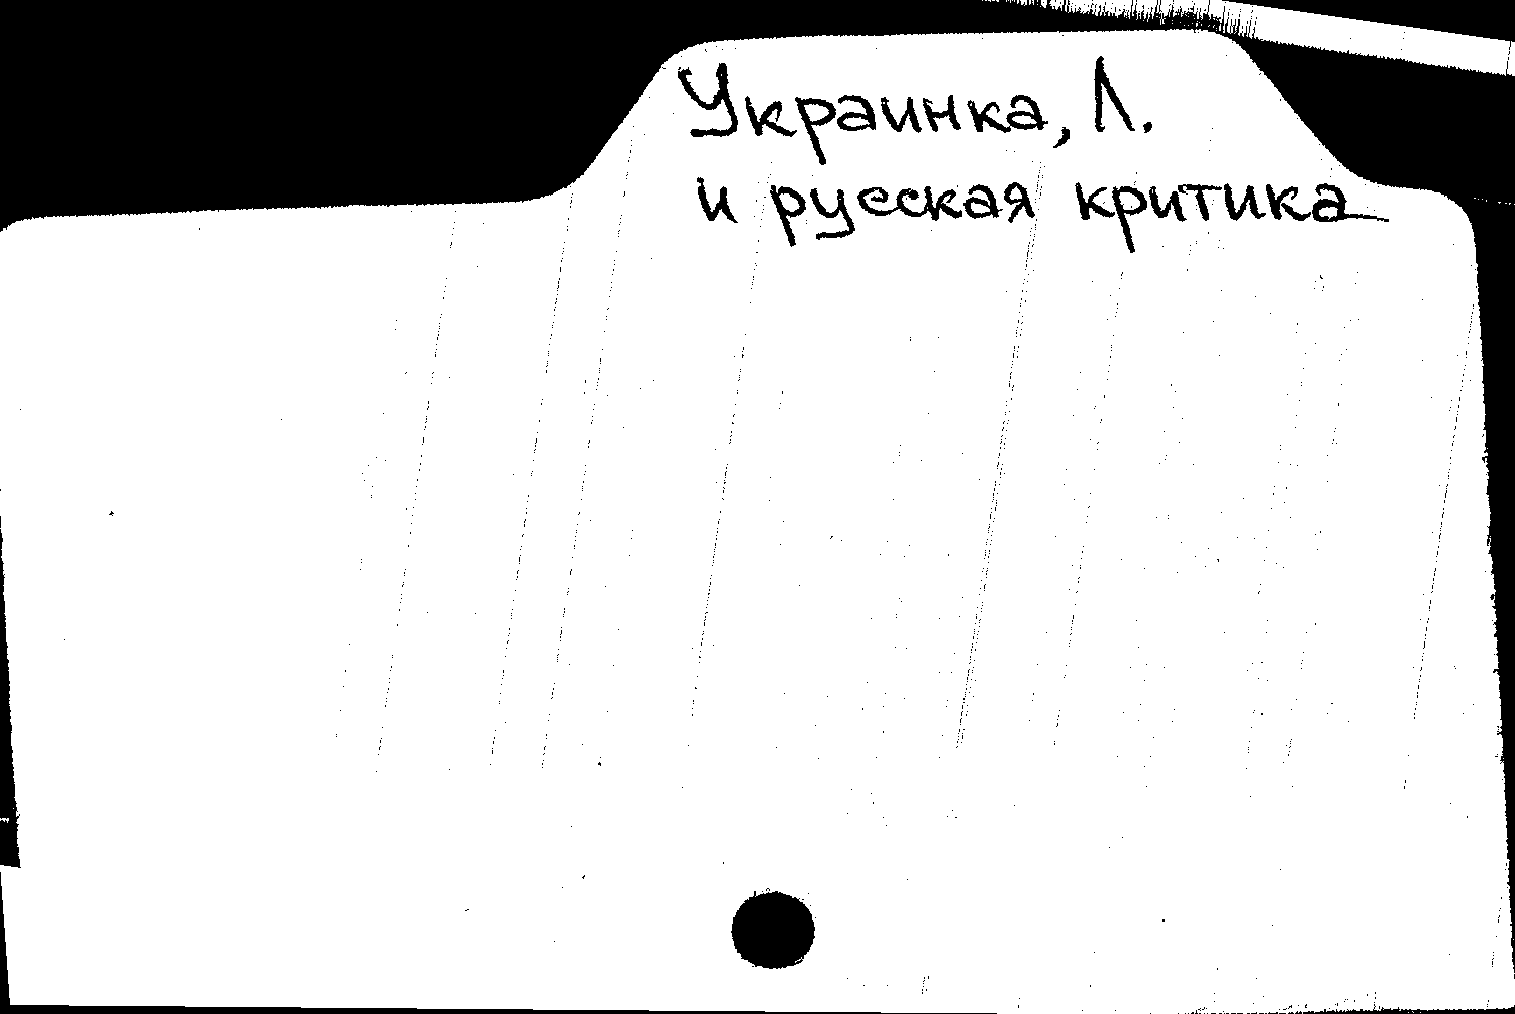 Украинка, Л.
и русская критика